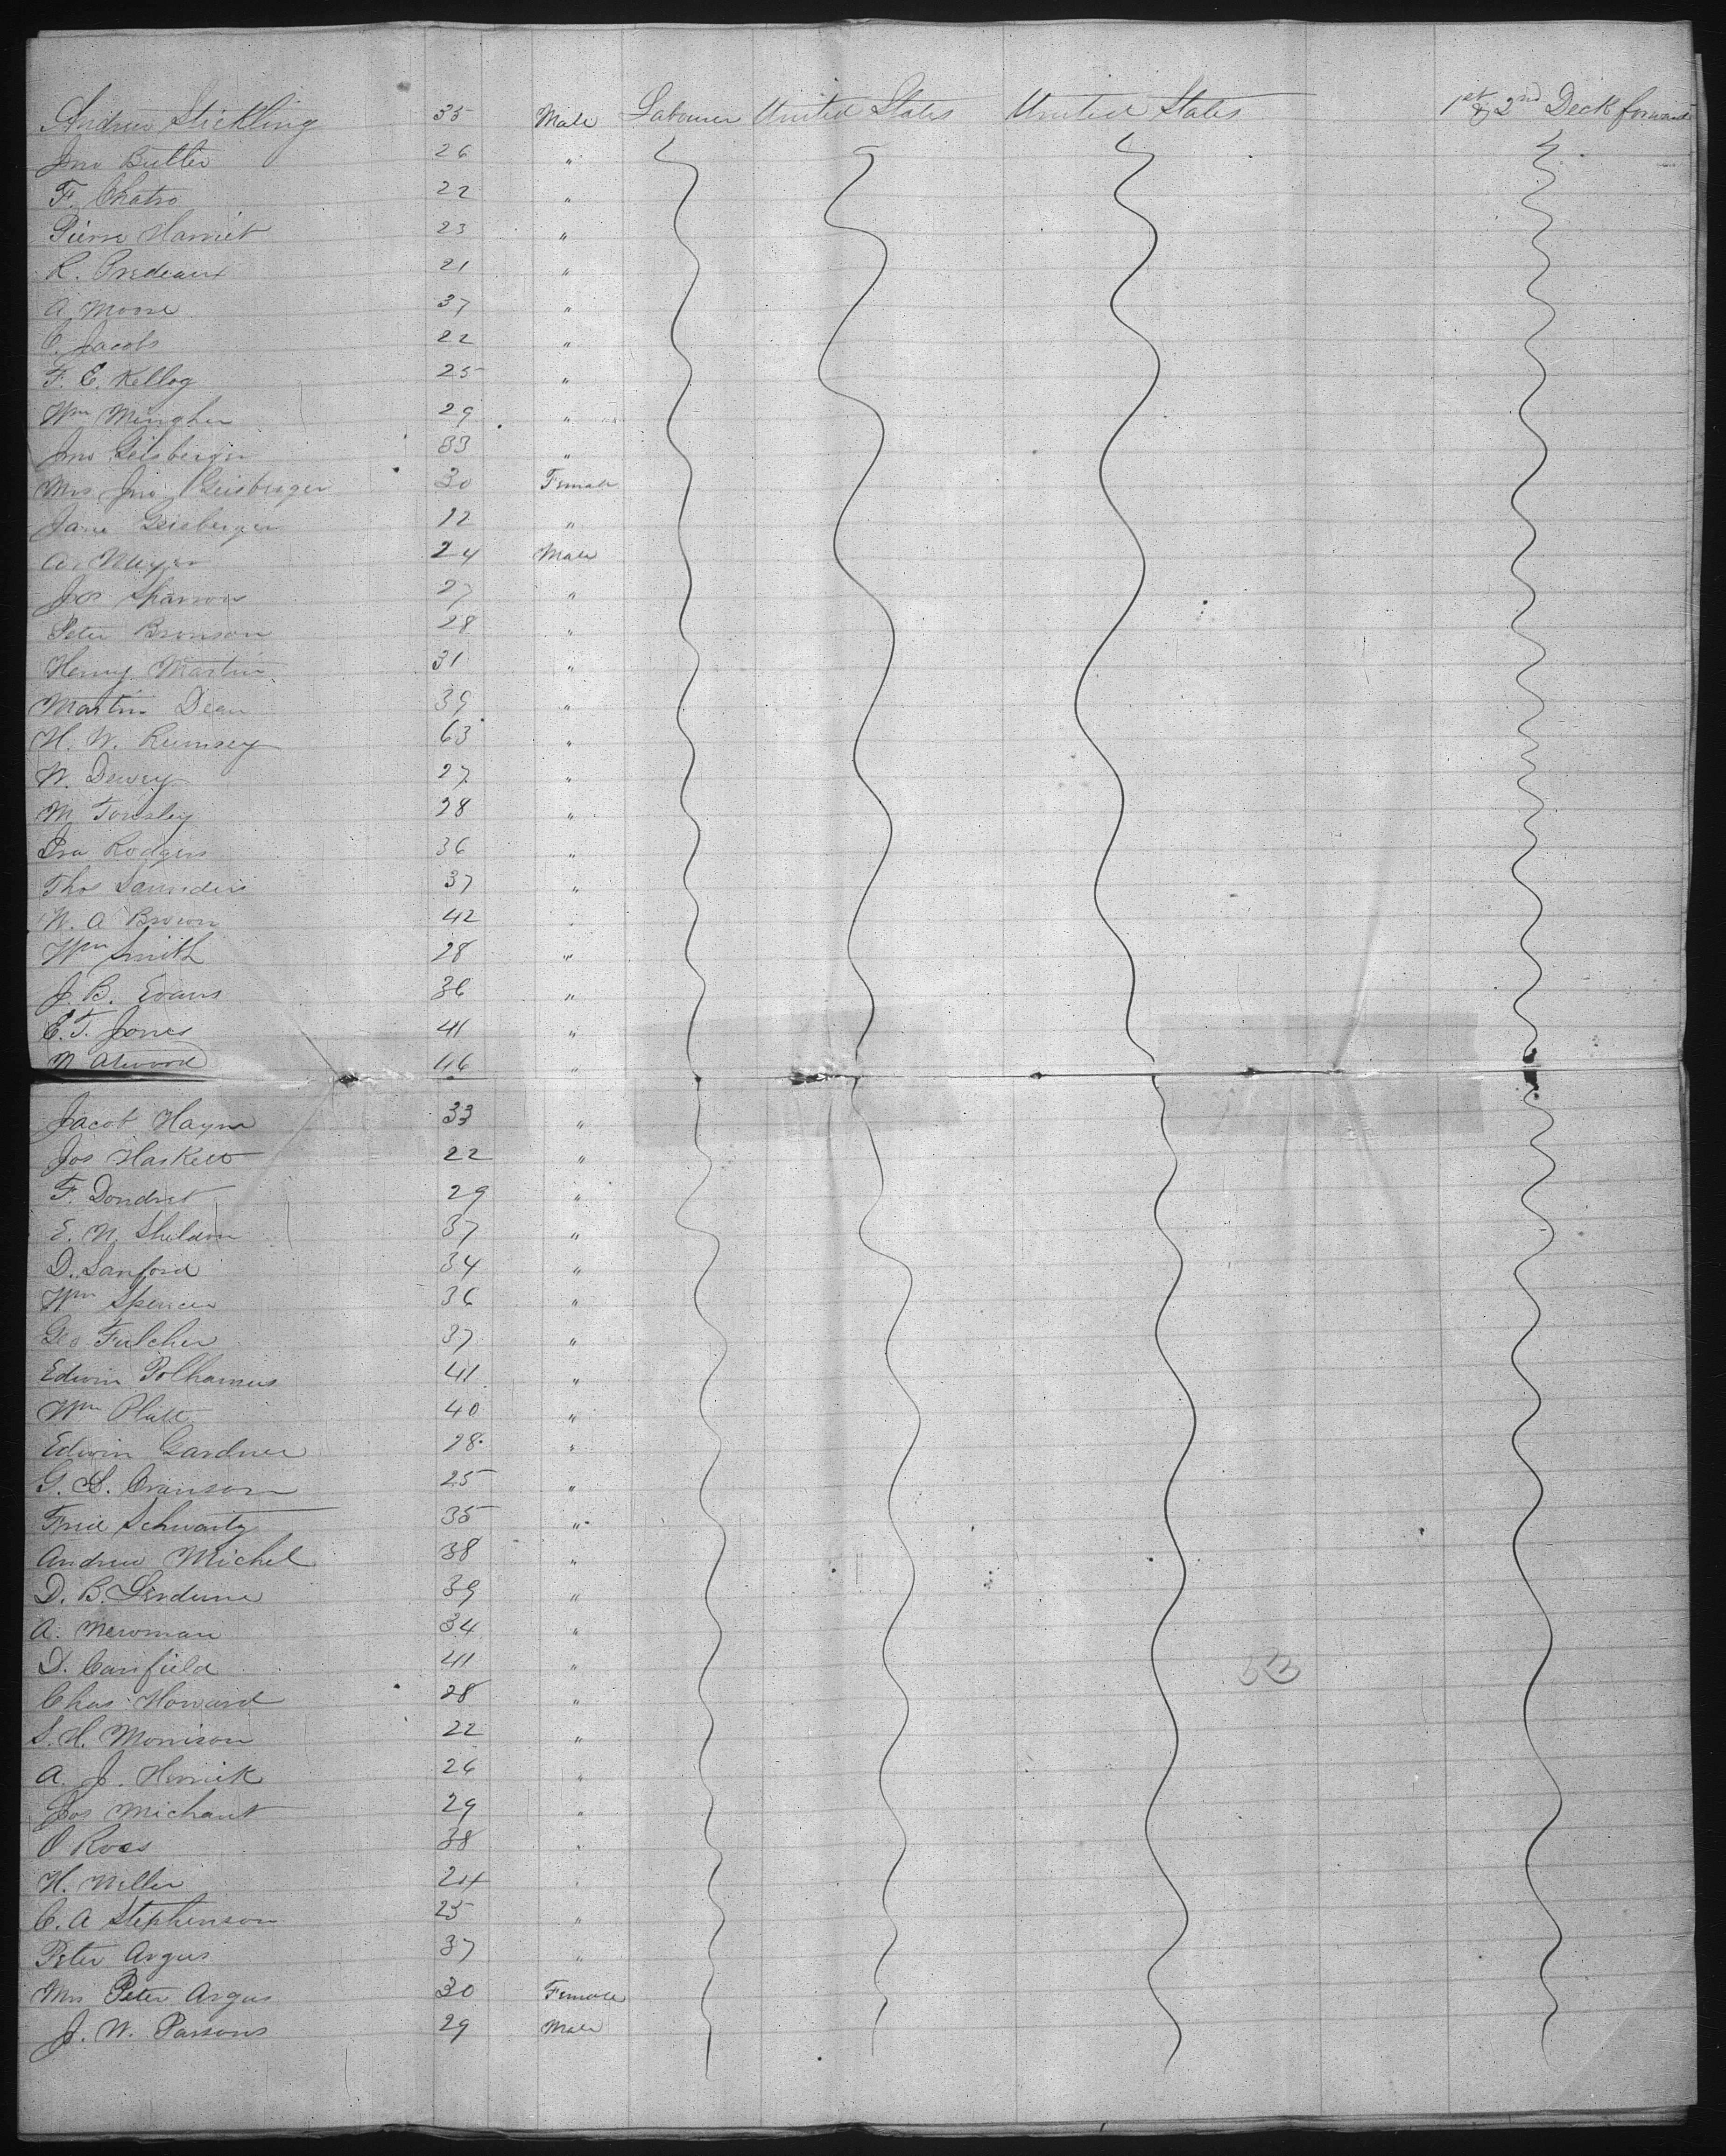 Andrew Stickling 35 Male Labourer United States United States 1st & 2nd Deck forward
Jno Butler 26 "
F. Chatro 22 "
Pierre Harriet 23 "
R. Predeaux 21 "
A Moore 37 "
C. Jacobs 22 "
F. E. Kellog 25 "
Wm Mingher 29 "
Jno Geisberger 33 "
Mrs Jno Geisberger 30 Female
Jane Geisberger 12 "
A. Meyer 24 Male
Jos Sparrow 27 "
Peter Bronson 28 "
Henry Martin 31 "
Martin Dean 39 "
H. W. Rumsey 63 "
W. Dewey 27 "
M Tousley 28 "
Ira Rodgers 36 "
Thos Saunders 37 "
W. A Brown 42 "
Wm Smith 28 "
J. B. Evans 36 "
E. T. Jones 41 "
N Atwood 46 "
Jacob Hayne 33 "
Jos Haskell 22 "
F. Dondret 29 "
E. N. Sheldon 37 "
D. Sanford 34 "
Wm Spencer 36 "
Geo Fulcher 37 "
Edwin Polhamus 41 "
Wm Platt 40 "
Edwin Gardner 28 "
G. S. Cranson 25 "
Fred Schwartz 35 "
Andrew Michel 38 "
D. B. 39 "
A. Newman 34 "
D. Canfield 41 "
Chas Howard 28 "
S. H. Morrison 22 "
A. J. Herrick 26 "
Jos Michaut 29 "
O Ross 38 "
H. Miller 24 "
C. A Stephenson 25 "
Peter Argus 37 "
Mrs Peter Argus 30 Female
J. W. Parsons 29 Male